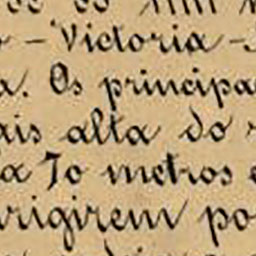 – Victoria –
. Os principa
ais alta do
a 70 metros
rigirem po